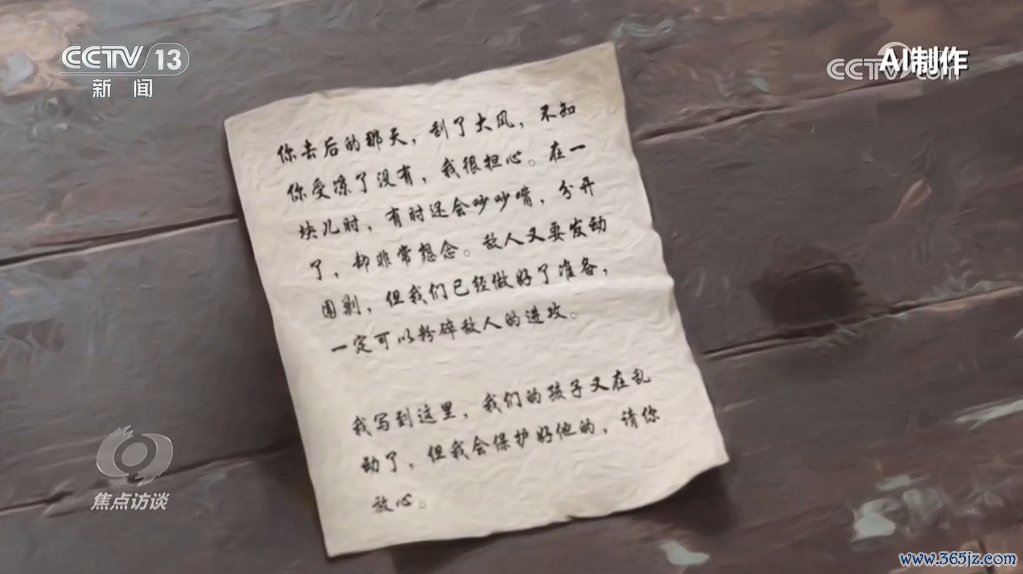 CCTV 13
新闻
AI制作
CCTV.com
你去后的那天，刮了大风，不知
你受冻了没有，我很担心。在一
块儿时，有时还会吵吵嘴，分开
了，却非常想念。敌人又要发动
围剿，但我们已经做好了准备，
一定可以粉碎敌人的进攻。
我写到这里，我们的孩子又在乱
动了，但我会保护好他的，请你
放心。
焦点访谈
www.365jz.com